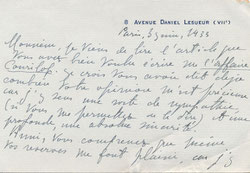 8 AVENUE DANIEL LESUEUR (VIIᵉ)
Paris, 3 juin, 1933
Monsieur, je viens de lire l'article que
vous avez bien voulu écrire sur l'affaire
Courilof. Je crois vous avoir déjà
combien votre opinion m'est précieuse
car j'y sens une sorte de sympathie
(si vous me permettez de le dire) et une
profonde, une absolue sincérité.
Aussi, vous comprenez que même
vos réserves me font plaisir, car j'y